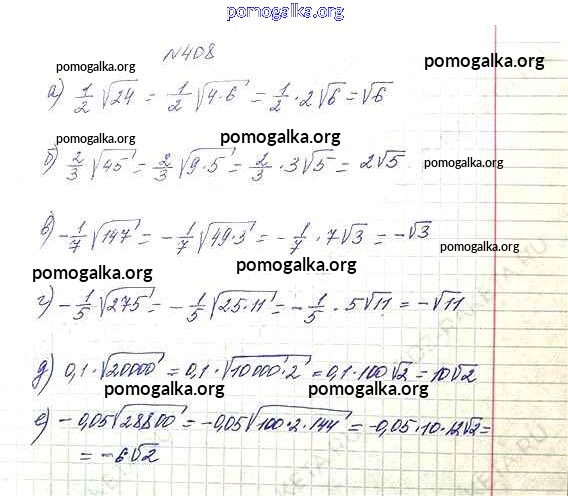 pomogalka.org
№408
pomogalka.org pomogalka.org
а) 1/2 √24 = 1/2 √4·6 = 1/2 · 2√6 = √6
pomogalka.org pomogalka.org
б) 2/3 √45 = 2/3 √9·5 = 2/3 · 3√5 = 2√5
pomogalka.org
pomogalka.org pomogalka.org
в) -1/7 √147 = -1/7 √49·3 = -1/7 · 7√3 = -√3
pomogalka.org
pomogalka.org pomogalka.org
г) -1/5 √275 = -1/5 √25·11 = -1/5 · 5√11 = -√11
д) 0,1·√20000 = 0,1·√10000·2 = 0,1·100√2 = 10√2
pomogalka.org pomogalka.org
е) -0,05√28800 = -0,05√100·2·144 = -0,05·10·12√2 =
= -6√2